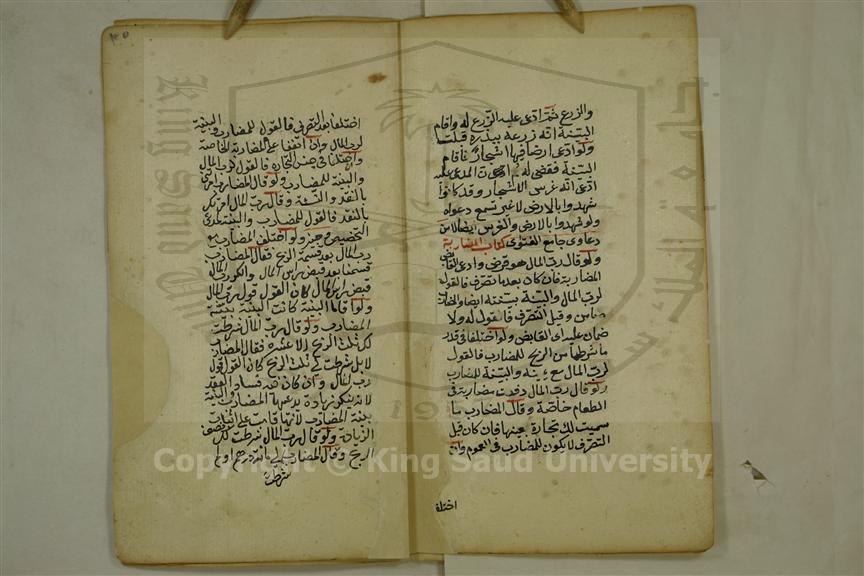 والزرع ثم ادعى عليه الزرع له واقام
البينة انه زرعه ببذره قبلت
ولو ادعى ارضا فيها اشجار فاقام
البينة فقضى له المدعى عليه
ادعى انه غرس الاشجار وقد كانوا
شهدوا بالارض لا غير تسمع دعواه
ولو شهدوا بالارض والغرس ايضا لا من
دعاوى جامع الفتوى كتاب المضاربة
ولو قال رب المال هو قرض وادعى القابض
المضاربة فان كان بعد ما تصرف فالقول
لرب المال والبينة بينته ايضا والمضارب
ضامن وقبل التصرف فالقول له ولا
ضمان عليه اى القابض ولو اختلفا فى قدر
ما شرطهما من الربح للمضارب فالقول
لرب المال مع يمينه والبينة للمضارب
ولو قال رب المال دفعت مضاربة فى
الطعام خاصة وقال المضارب ما
سميت لك تجارة بعينها فان كان قبل
التصرف لا يكون للمضارب فى العموم وان
اختلفا
١٢٥
اختلفا بعد التصرف فالقول للمضارب والبينة
لرب المال وان اتفقا على المضاربة الخاصة
واختلفا فى جنس التجارة فالقول لرب المال
والبينة للمضارب ولو قال المضارب
بالنقد والنسئة وقال رب المال امرتك
بالنقد فالقول للمضارب والبينة لمدعى
التخصيص ولو اختلف المضارب مع
رب المال بعد قسمة الربح فقال المضارب
قسمنا بعد قبض راس المال وانكر رب المال
قبض راس المال كان القول قول رب المال
ولو اقاما البينة كانت البينة بينة
المضارب ولو قال رب المال شرطت
لك ثلث الربح الا عشرة فقال المضارب
لا بل شرطت لى ثلث الربح كان القول قول
رب المال وان كان فيه فساد العقد
لانه ينكر زيادة يدعيها المضارب والبينة
بينة المضارب لانها قامت على اثبات
الزيادة ولو قال رب المال شرطت لك نصف
الربح وقال المضارب لى مائة درهم او لم
تشترط
King Saud University
جامعة الملك سعود
1957
Copyright © King Saud University